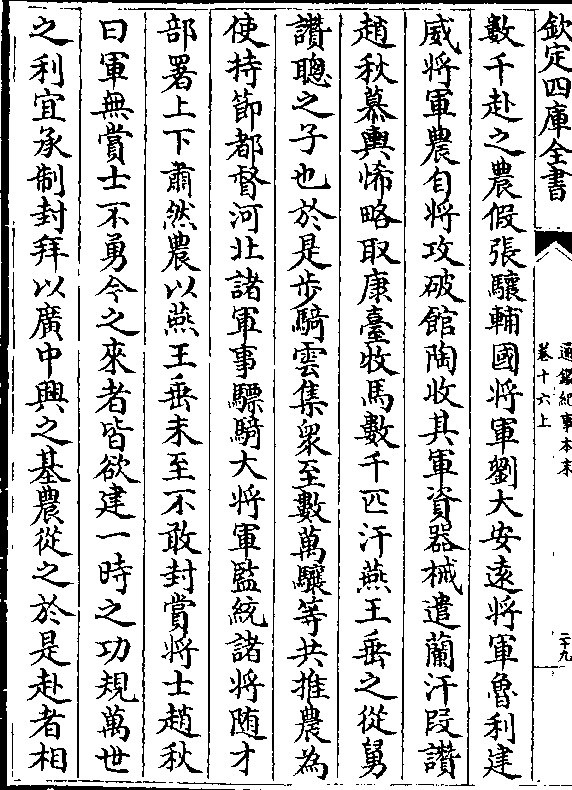 欽定四庫全書
通鑑紀事本末
卷十六上
二十九
數千赴之農假張驤輔國將軍劉大安逺將軍魯利建
威將軍農自將攻破館陶收其軍資器械遣蘭汗叚讃
趙秋慕輿悕略取康臺牧馬數千匹汗燕王垂之從舅
讃聰之子也於是步騎雲集衆至數萬驤等共推農為
使持節都督河北諸軍事驃騎大將軍監統諸將随才
部署上下肅然農以燕王垂未至不敢封賞將士趙秋
曰軍無賞士不勇今之來者皆欲建一時之功規萬世
之利宜承制封拜以廣中興之基農從之於是赴者相